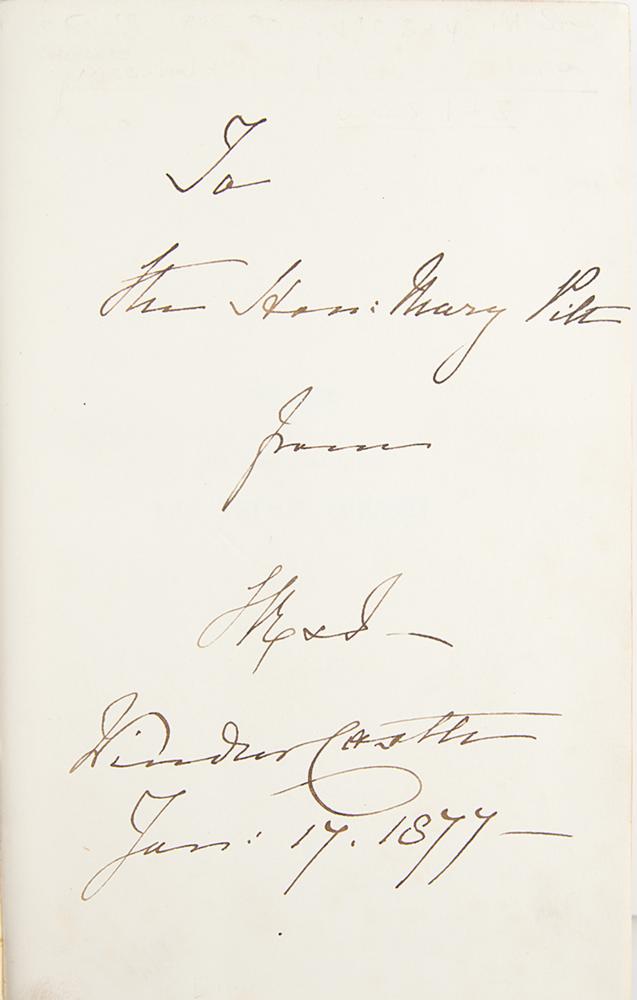 To
The Hon: Mary Pitt
from
VR & I —
Windsor Castle
Jan: 17. 1877 —